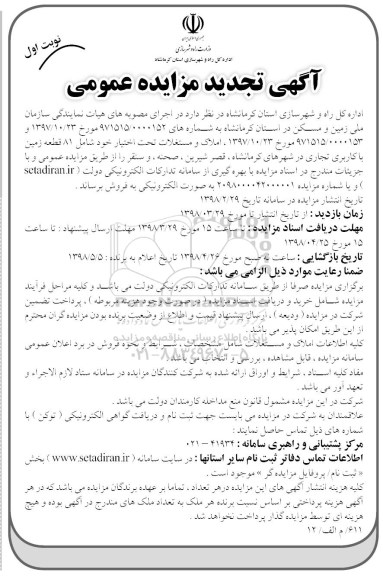 جمهوری اسلامی ایران
وزارت راه و شهرسازی
اداره کل راه و شهرسازی استان کرمانشاه
نوبت اول
آگهی تجدید مزایده عمومی
اداره کل راه و شهرسازی استان کرمانشاه در نظر دارد در اجرای مصوبه های هیات نمایندگی سازمان
ملی زمین و مسکن در استان کرمانشاه به شماره های ۹۷۱۵۱۵/۰۰۰۰۱۵۲ مورخ ۱۳۹۷/۱۰/۲۳ و
۹۷۱۵۱۵/۰۰۰۰۱۵۳ مورخ ۱۳۹۷/۱۰/۲۳ ، املاک و مستغلات تحت اختیار خود شامل ۸۱ قطعه زمین
با کاربری تجاری در شهرهای کرمانشاه ، قصر شیرین ، صحنه ، و سنقر را از طریق مزایده عمومی و با
جزئیات مندرج در اسناد مزایده با بهره گیری از سامانه تدارکات الکترونیکی دولت ( setadiran.ir
) و با شماره مزایده ۲۰۹۸۰۰۰۰۴۲۰۰۰۰۰۱ به صورت الکترونیکی به فروش برساند .
تاریخ انتشار مزایده در سامانه تاریخ ۱۳۹۸/۲/۲۹
زمان بازدید : از تاریخ انتشار تا مورخ ۱۳۹۸/۰۳/۲۹
مهلت دریافت اسناد مزایده : تا ساعت ۱۵ مورخ ۱۳۹۸/۳/۲۹ مهلت ارسال پیشنهاد : تا ساعت
۱۵ مورخ ۱۳۹۸/۰۴/۲۵
تاریخ بازگشایی : ساعت ۹ صبح مورخ ۱۳۹۸/۴/۲۶ تاریخ اعلام به برنده : ۱۳۹۸/۵/۵
ضمنا رعایت موارد ذیل الزامی می باشد:
برگزاری مزایده صرفا از طریق سامانه تدارکات الکترونیکی دولت می باشد و کلیه مراحل فرآیند
مزایده شامل خرید و دریافت اسناد مزایده ( در صورت وجود هزینه مربوطه ) ، پرداخت تضمین
شرکت در مزایده ( ودیعه ) ، ارسال پیشنهاد قیمت و اطلاع از وضعیت برنده بودن مزایده گران محترم
از این طریق امکان پذیر می باشد .
کلیه اطلاعات املاک و مستغلات شامل مشخصات ، شرایط و نحوه فروش در برد اعلان عمومی
سامانه مزایده ، قابل مشاهده ، بررسی و انتخاب می باشد .
مفاد کلیه اسناد ، شرایط و اوراق ارائه شده به شرکت کنندگان مزایده در سامانه ستاد لازم الاجراء و
تعهد آور می باشد .
شرکت در این مزایده مشمول قانون منع مداخله کارمندان دولت می باشد .
علاقمندان به شرکت در مزایده می بایست جهت ثبت نام و دریافت گواهی الکترونیکی ( توکن ) با
شماره های ذیل تماس حاصل نمایند :
مرکز پشتیبانی و راهبری سامانه : ۴۱۹۳۴ – ۰۲۱
اطلاعات تماس دفاتر ثبت نام سایر استانها : در سایت سامانه ( www.setadiran.ir ) بخش
« ثبت نام/ پروفایل مزایده گر » موجود است .
کلیه هزینه انتشار آگهی های این مزایده در هر تعداد ، تماما بر عهده برندگان مزایده می باشد که در هر
آگهی هزینه پرداختی بر اساس نسبت برنده هر ملک به تعداد ملک های مندرج در آگهی بوده و هیچ
هزینه ای توسط مزایده گذار پرداخت نخواهد شد .
۶۱۱/ م الف/ ۱۲